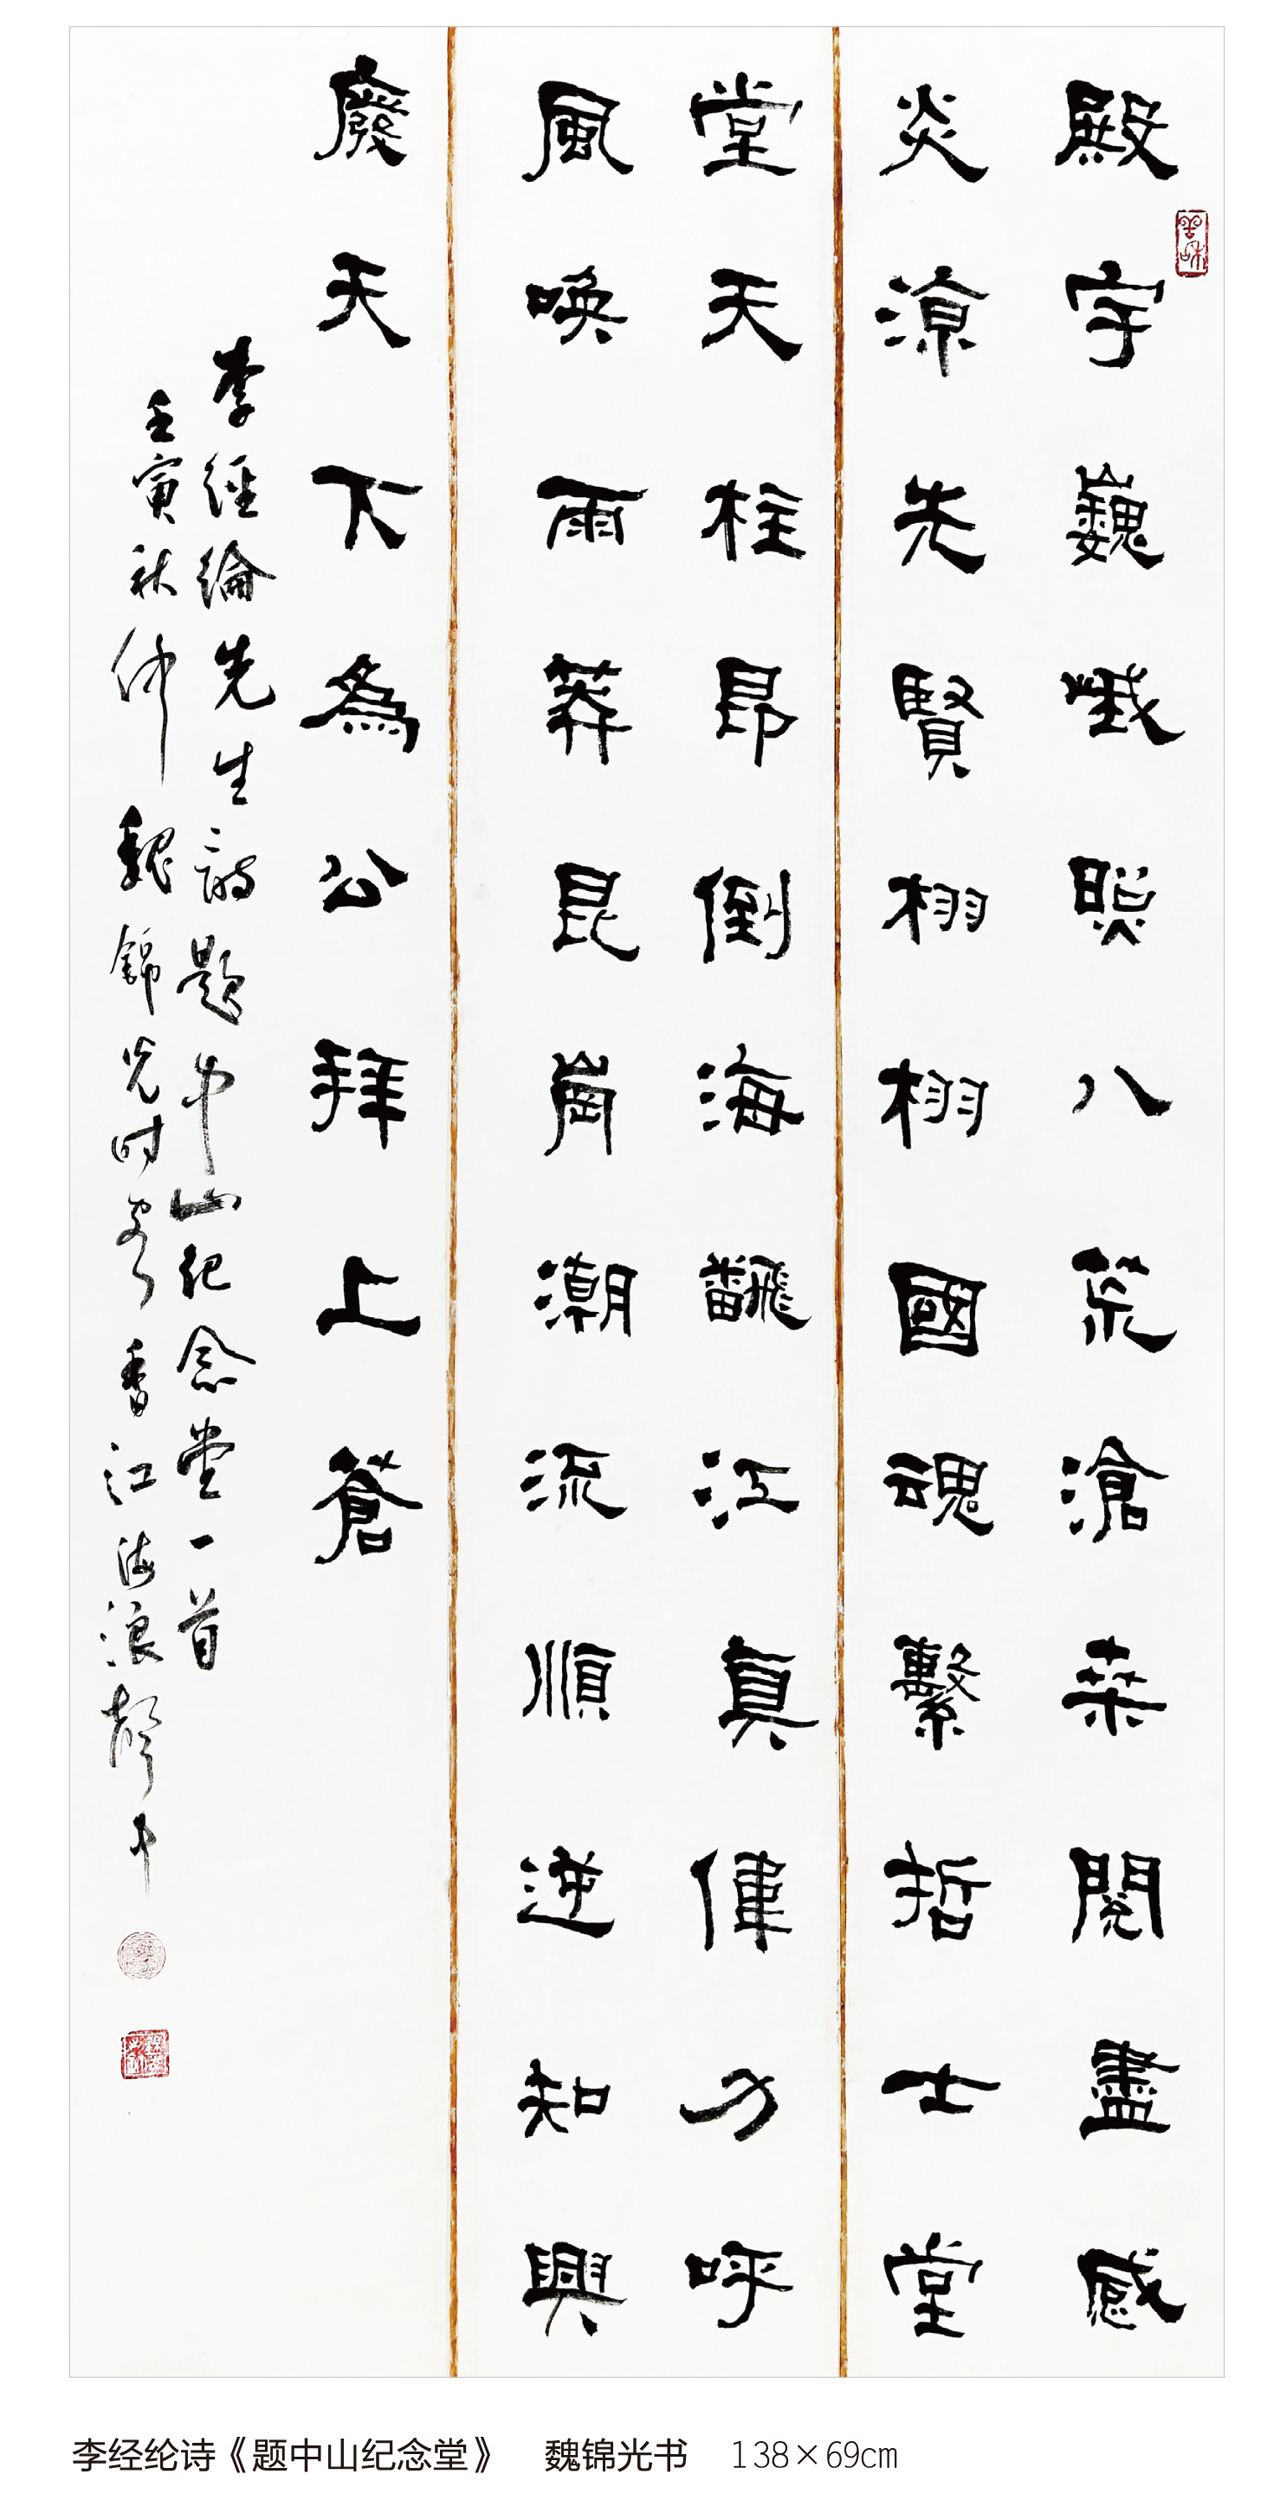 殿宇巍峨照八荒滄桑閱盡感
炎涼先賢栩栩國魂繫哲士堂
堂天柱昂倒海飜江真偉力呼
風喚雨莽昆崗潮流順逆知興
廢天下為公拜上蒼
李經綸先生詩題中山紀念堂一首
壬寅秋仲魏錦光时客香江海浪聲中
李经纶诗《题中山纪念堂》 魏锦光书 138×69cm